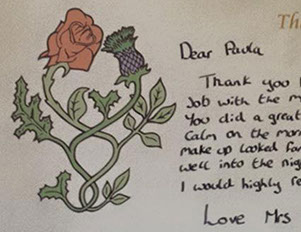 Th
Dear Paula
Thank you
Job with the m
You did a great
Calm on the mor
make up looked fa
well into the nig
I would highly re
Love Mrs